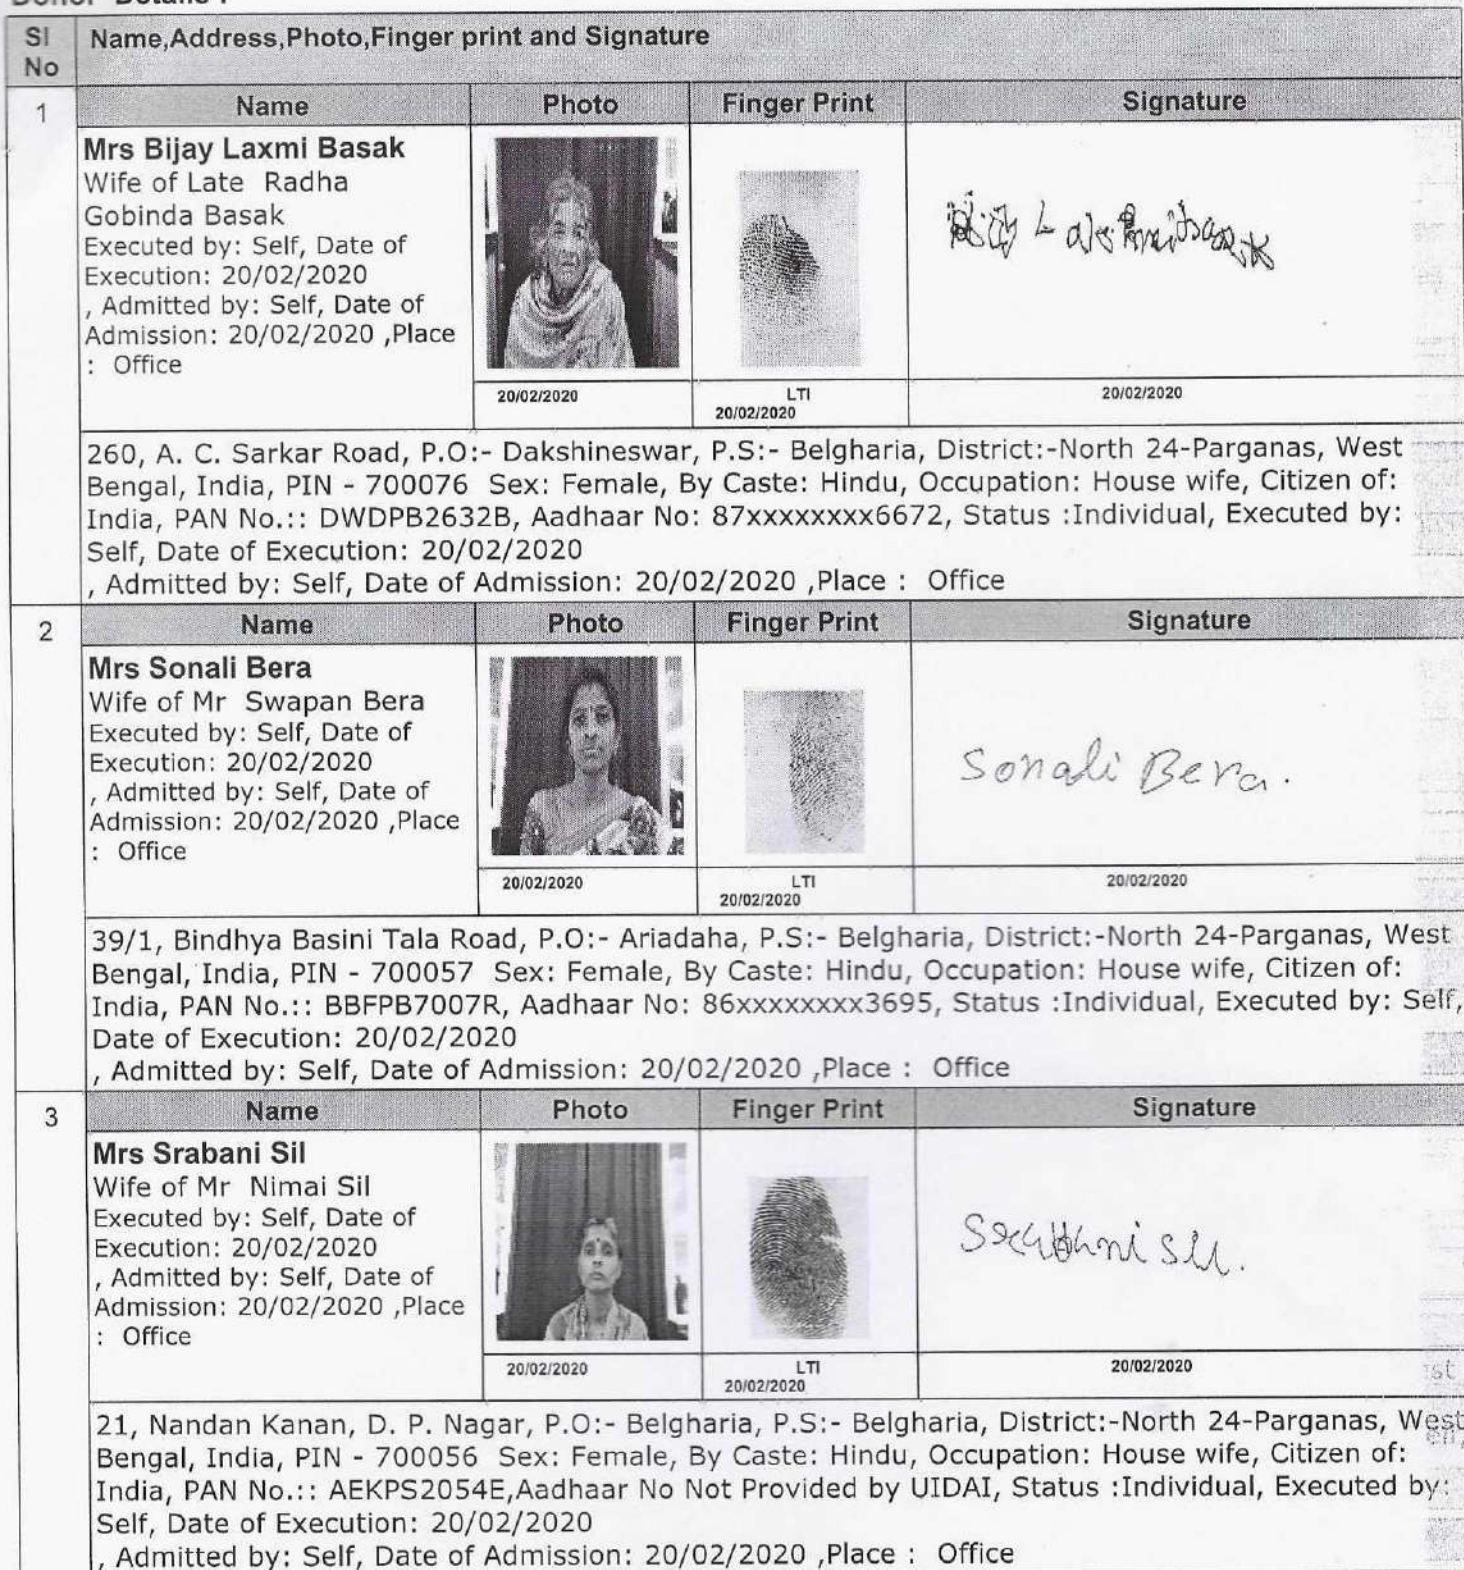 Donor Details :
Sl No
Name,Address,Photo,Finger print and Signature
1
Name Photo Finger Print Signature
Mrs Bijay Laxmi Basak
Wife of Late Radha
Gobinda Basak
Executed by: Self, Date of
Execution: 20/02/2020
, Admitted by: Self, Date of
Admission: 20/02/2020 ,Place
: Office
20/02/2020
LTI
20/02/2020
20/02/2020
260, A. C. Sarkar Road, P.O:- Dakshineswar, P.S:- Belgharia, District:-North 24-Parganas, West
Bengal, India, PIN - 700076 Sex: Female, By Caste: Hindu, Occupation: House wife, Citizen of:
India, PAN No.:: DWDPB2632B, Aadhaar No: 87xxxxxxxx6672, Status :Individual, Executed by:
Self, Date of Execution: 20/02/2020
, Admitted by: Self, Date of Admission: 20/02/2020 ,Place : Office
2
Name Photo Finger Print Signature
Mrs Sonali Bera
Wife of Mr Swapan Bera
Executed by: Self, Date of
Execution: 20/02/2020
, Admitted by: Self, Date of
Admission: 20/02/2020 ,Place
: Office
Sonali Bera.
20/02/2020
LTI
20/02/2020
20/02/2020
39/1, Bindhya Basini Tala Road, P.O:- Ariadaha, P.S:- Belgharia, District:-North 24-Parganas, West
Bengal, India, PIN - 700057 Sex: Female, By Caste: Hindu, Occupation: House wife, Citizen of:
India, PAN No.:: BBFPB7007R, Aadhaar No: 86xxxxxxxx3695, Status :Individual, Executed by: Self,
Date of Execution: 20/02/2020
, Admitted by: Self, Date of Admission: 20/02/2020 ,Place : Office
3
Name Photo Finger Print Signature
Mrs Srabani Sil
Wife of Mr Nimai Sil
Executed by: Self, Date of
Execution: 20/02/2020
, Admitted by: Self, Date of
Admission: 20/02/2020 ,Place
: Office
20/02/2020
LTI
20/02/2020
20/02/2020
21, Nandan Kanan, D. P. Nagar, P.O:- Belgharia, P.S:- Belgharia, District:-North 24-Parganas, West
Bengal, India, PIN - 700056 Sex: Female, By Caste: Hindu, Occupation: House wife, Citizen of:
India, PAN No.:: AEKPS2054E,Aadhaar No Not Provided by UIDAI, Status :Individual, Executed by:
Self, Date of Execution: 20/02/2020
, Admitted by: Self, Date of Admission: 20/02/2020 ,Place : Office